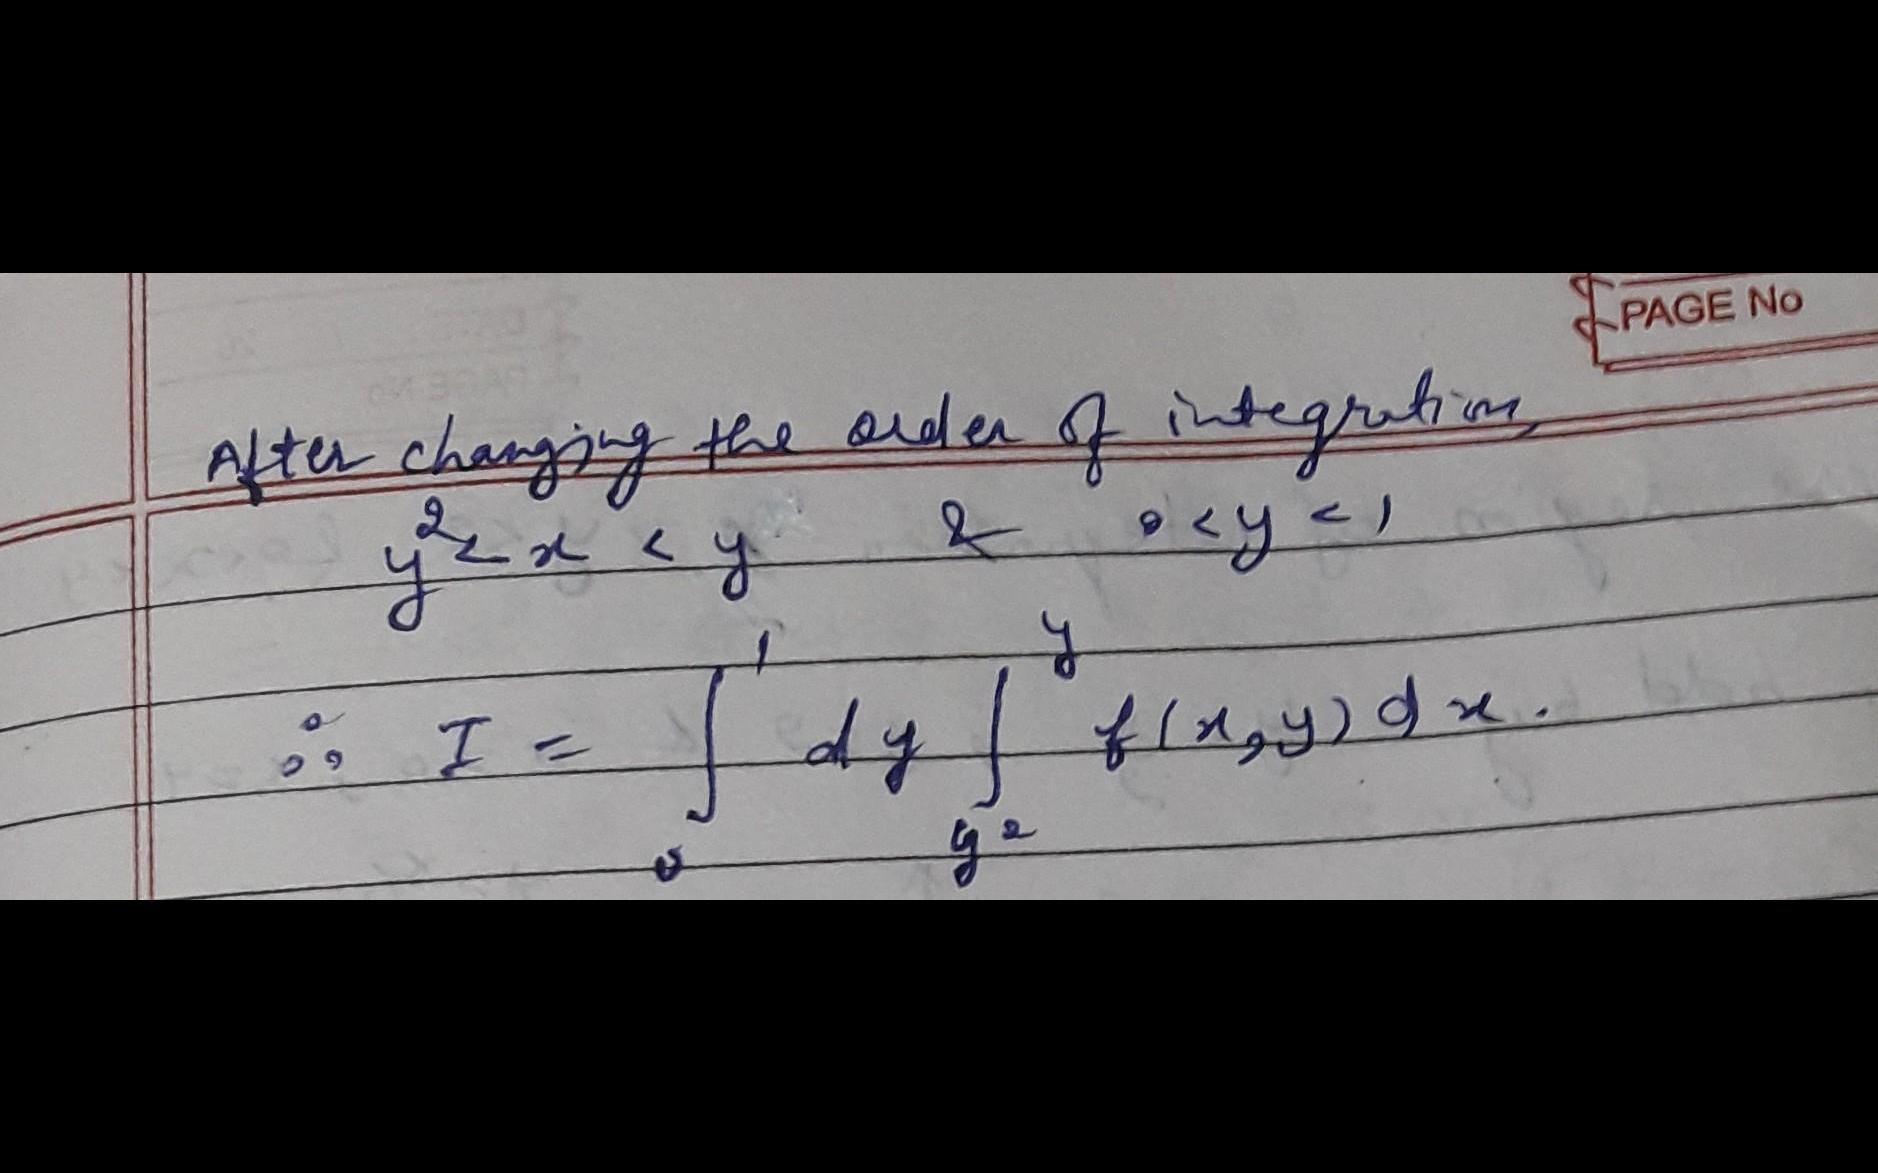 PAGE No
After changing the order of integration,
y² < x < y & 0 < y < 1
∴ I = ∫₀¹ dy ∫_{y²}^{y} f(x,y) dx.